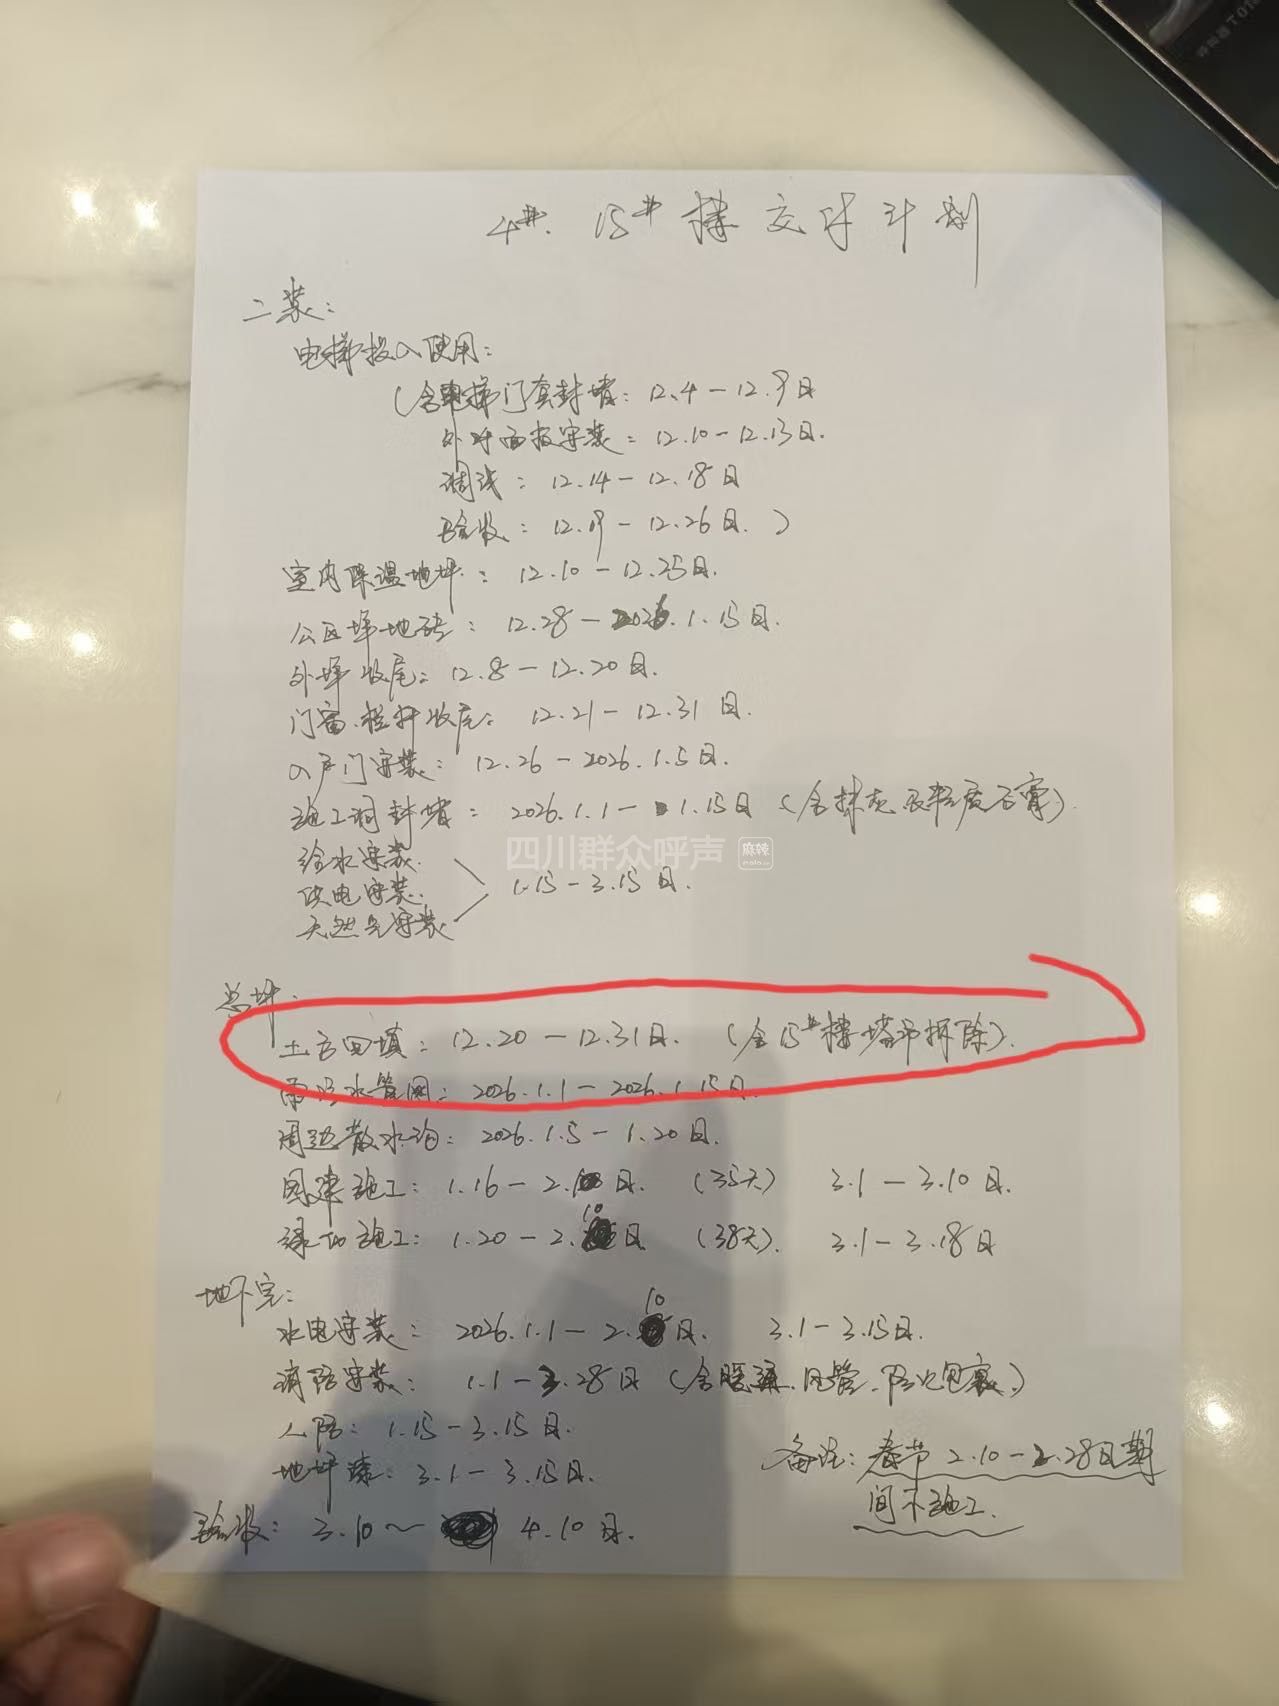 4#、15#楼交付计划
二装：
电梯投入使用：
（含电梯门套封堵：12.4－12.9日
外呼面板安装：12.10－12.13日.
调试：12.14－12.18日
验收：12.19－12.26日.）
室内保温地坪：12.10－12.25日.
公区墙地砖：12.28－2026.1.15日.
外墙收尾：12.8－12.20日.
门窗.栏杆收尾：12.21－12.31日.
入户门安装：12.26－2026.1.5日.
施工洞封堵：2026.1.1－1.15日（含抹灰
给水安装.
供电安装. 1.15－3.15日.
天然气安装
四川群众呼声 麻辣
总坪：
土方回填：12.20－12.31日.（含15#楼塔吊拆除）.
雨污水管网：2026.1.1－2026.1.15日.
周边散水沟：2026.1.5－1.20日.
园建施工：1.16－2.10日.（35天） 3.1－3.10日.
绿化施工：1.20－2.10日（38天）. 3.1－3.18日
地下室：
水电安装：2026.1.1－2.10日. 3.1－3.15日.
消防安装：1.1－3.28日（含暖通.风管.防火包裹.）
人防：1.15－3.15日.
地坪漆：3.1－3.15日.
备注：春节2.10－2.28日期
间不施工.
验收：3.10～4.10日.